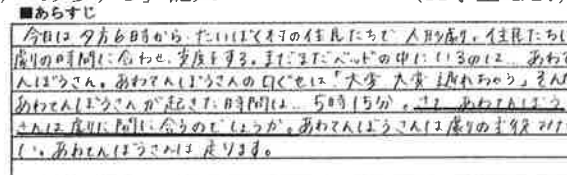 ■あらすじ
今日は夕方6時から、だいばくずの住民たちで人形劇り。住民たちし
劇りの時間に合わせ、支度をする。まだまだベッドの中にいるのは、あわて
んぼうさん。あわてんぼうさんの口ぐせは「大変 大変 遅れちゃう」そん
あわてんぼうさんが起きた時間は… 5時15分。さて、あわてんぼう
さんは 間に合うのでしょうか。あわてんぼうさんは の主役
い。あわてんぼうさんは走ります。